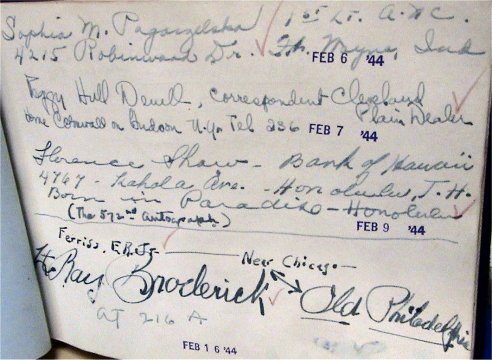 Sophia M. Pagorzelska 1st Lt. A.N.C.
4215 Robinwood Dr. Ft. Wayne, Ind
FEB 6 '44
Peggy Hull Deuell, correspondent Cleveland
Home Cornwall on Hudson N.Y. Tel 236 Plain Dealer
FEB 7 '44
Florence Shaw - Bank of Hawaii
4767 - Kahala Ave. - Honolulu, T.H.
Born in Paradise - Honolulu
(The 572nd autograph)
FEB 9 '44
Ferriss, E.R. Jr. New Chicago
Ray Broderick Old Philadelphia
AT 216 A
FEB 16 '44